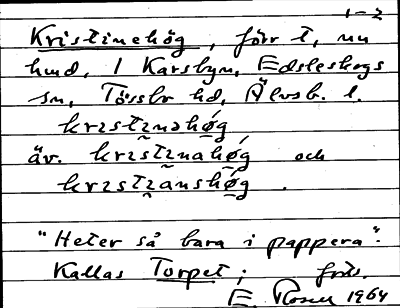 1-2
Kristinehög, förr t, nu
hmd, 1 Karsbyn, Edsleskogs
sn, Tössbo hd, Älvsb. l.
krɪstɪnəhǿg
äv. krɪstɪnahǿg och
krɪstɪanshǿg.
"Heter så bara i pappera".
Kallas Torpet; forts.
E 1964